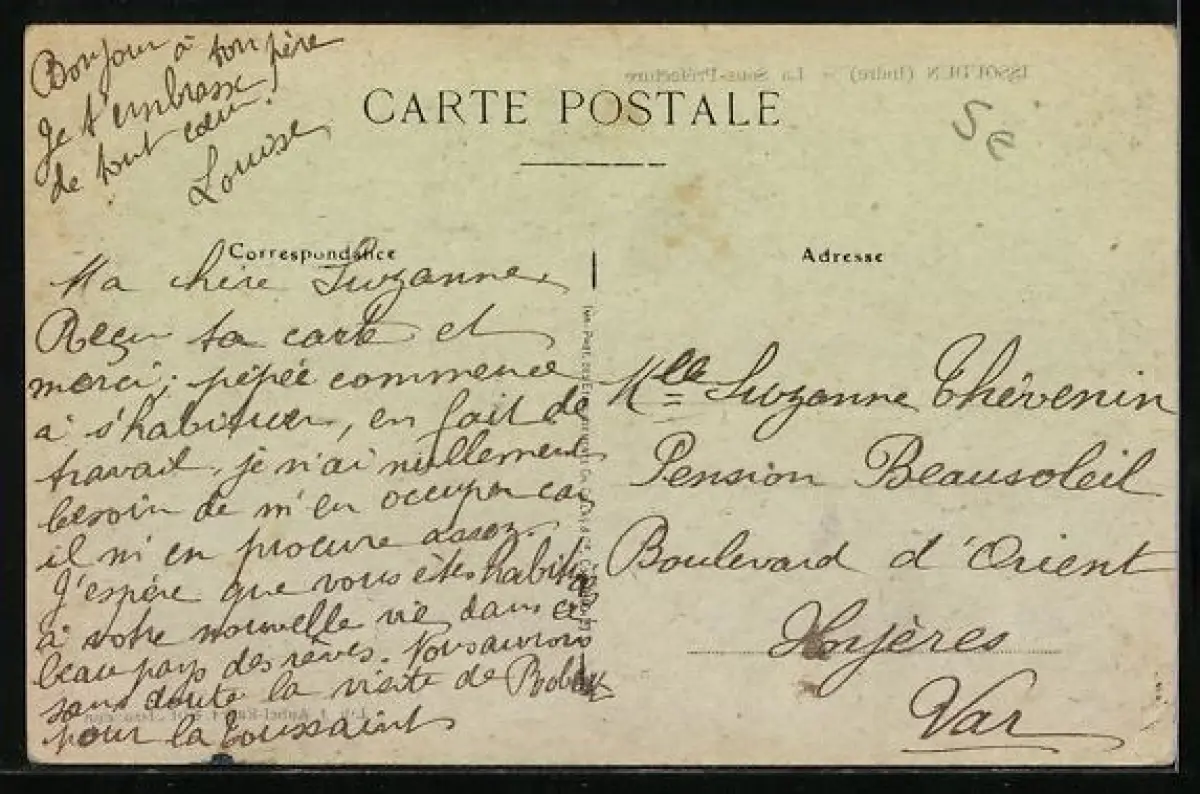 Bonjour à ton père
Je t'embrasse
de tout cœur !
Louise
ISSOUDUN (Indre) - La Sous-Préfecture
CARTE POSTALE
5e
Correspondance
Adresse
Ma chère Suzanne,
Reçu ta carte et
merci; pépée commence
à s'habituer, en fait de
travail, je n'ai nullement
besoin de m'en occuper car
il m'en procure assez.
J'espère que vous êtes habitués
à votre nouvelle vie dans ce
beau pays des rêves. Nous aurons
sans doute la visite de
pour la Toussaint
Mlle Suzanne Thévenin
Pension Beausoleil
Boulevard d'Orient
Hyères
Var